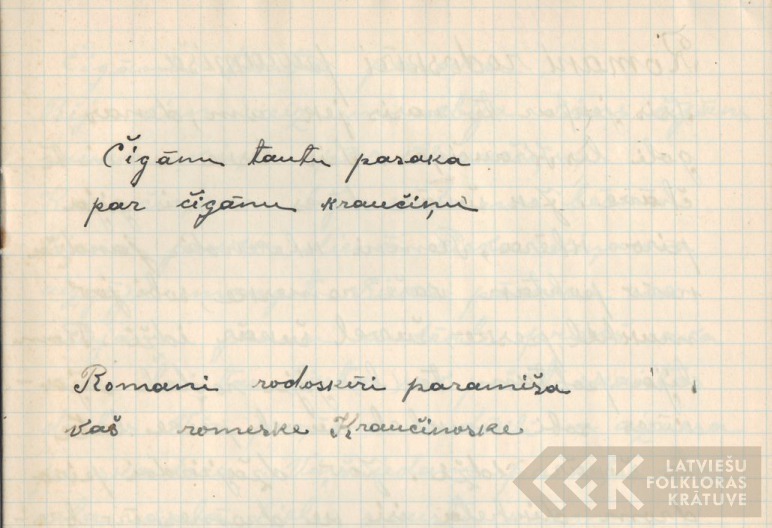 Čigānu tautu pasaka
par čigānu kraučiņu
Romani rodoskīri paramiša
vaš romeske Kraučinoske
LATVIEŠU
FOLKLORAS
KRĀTUVE